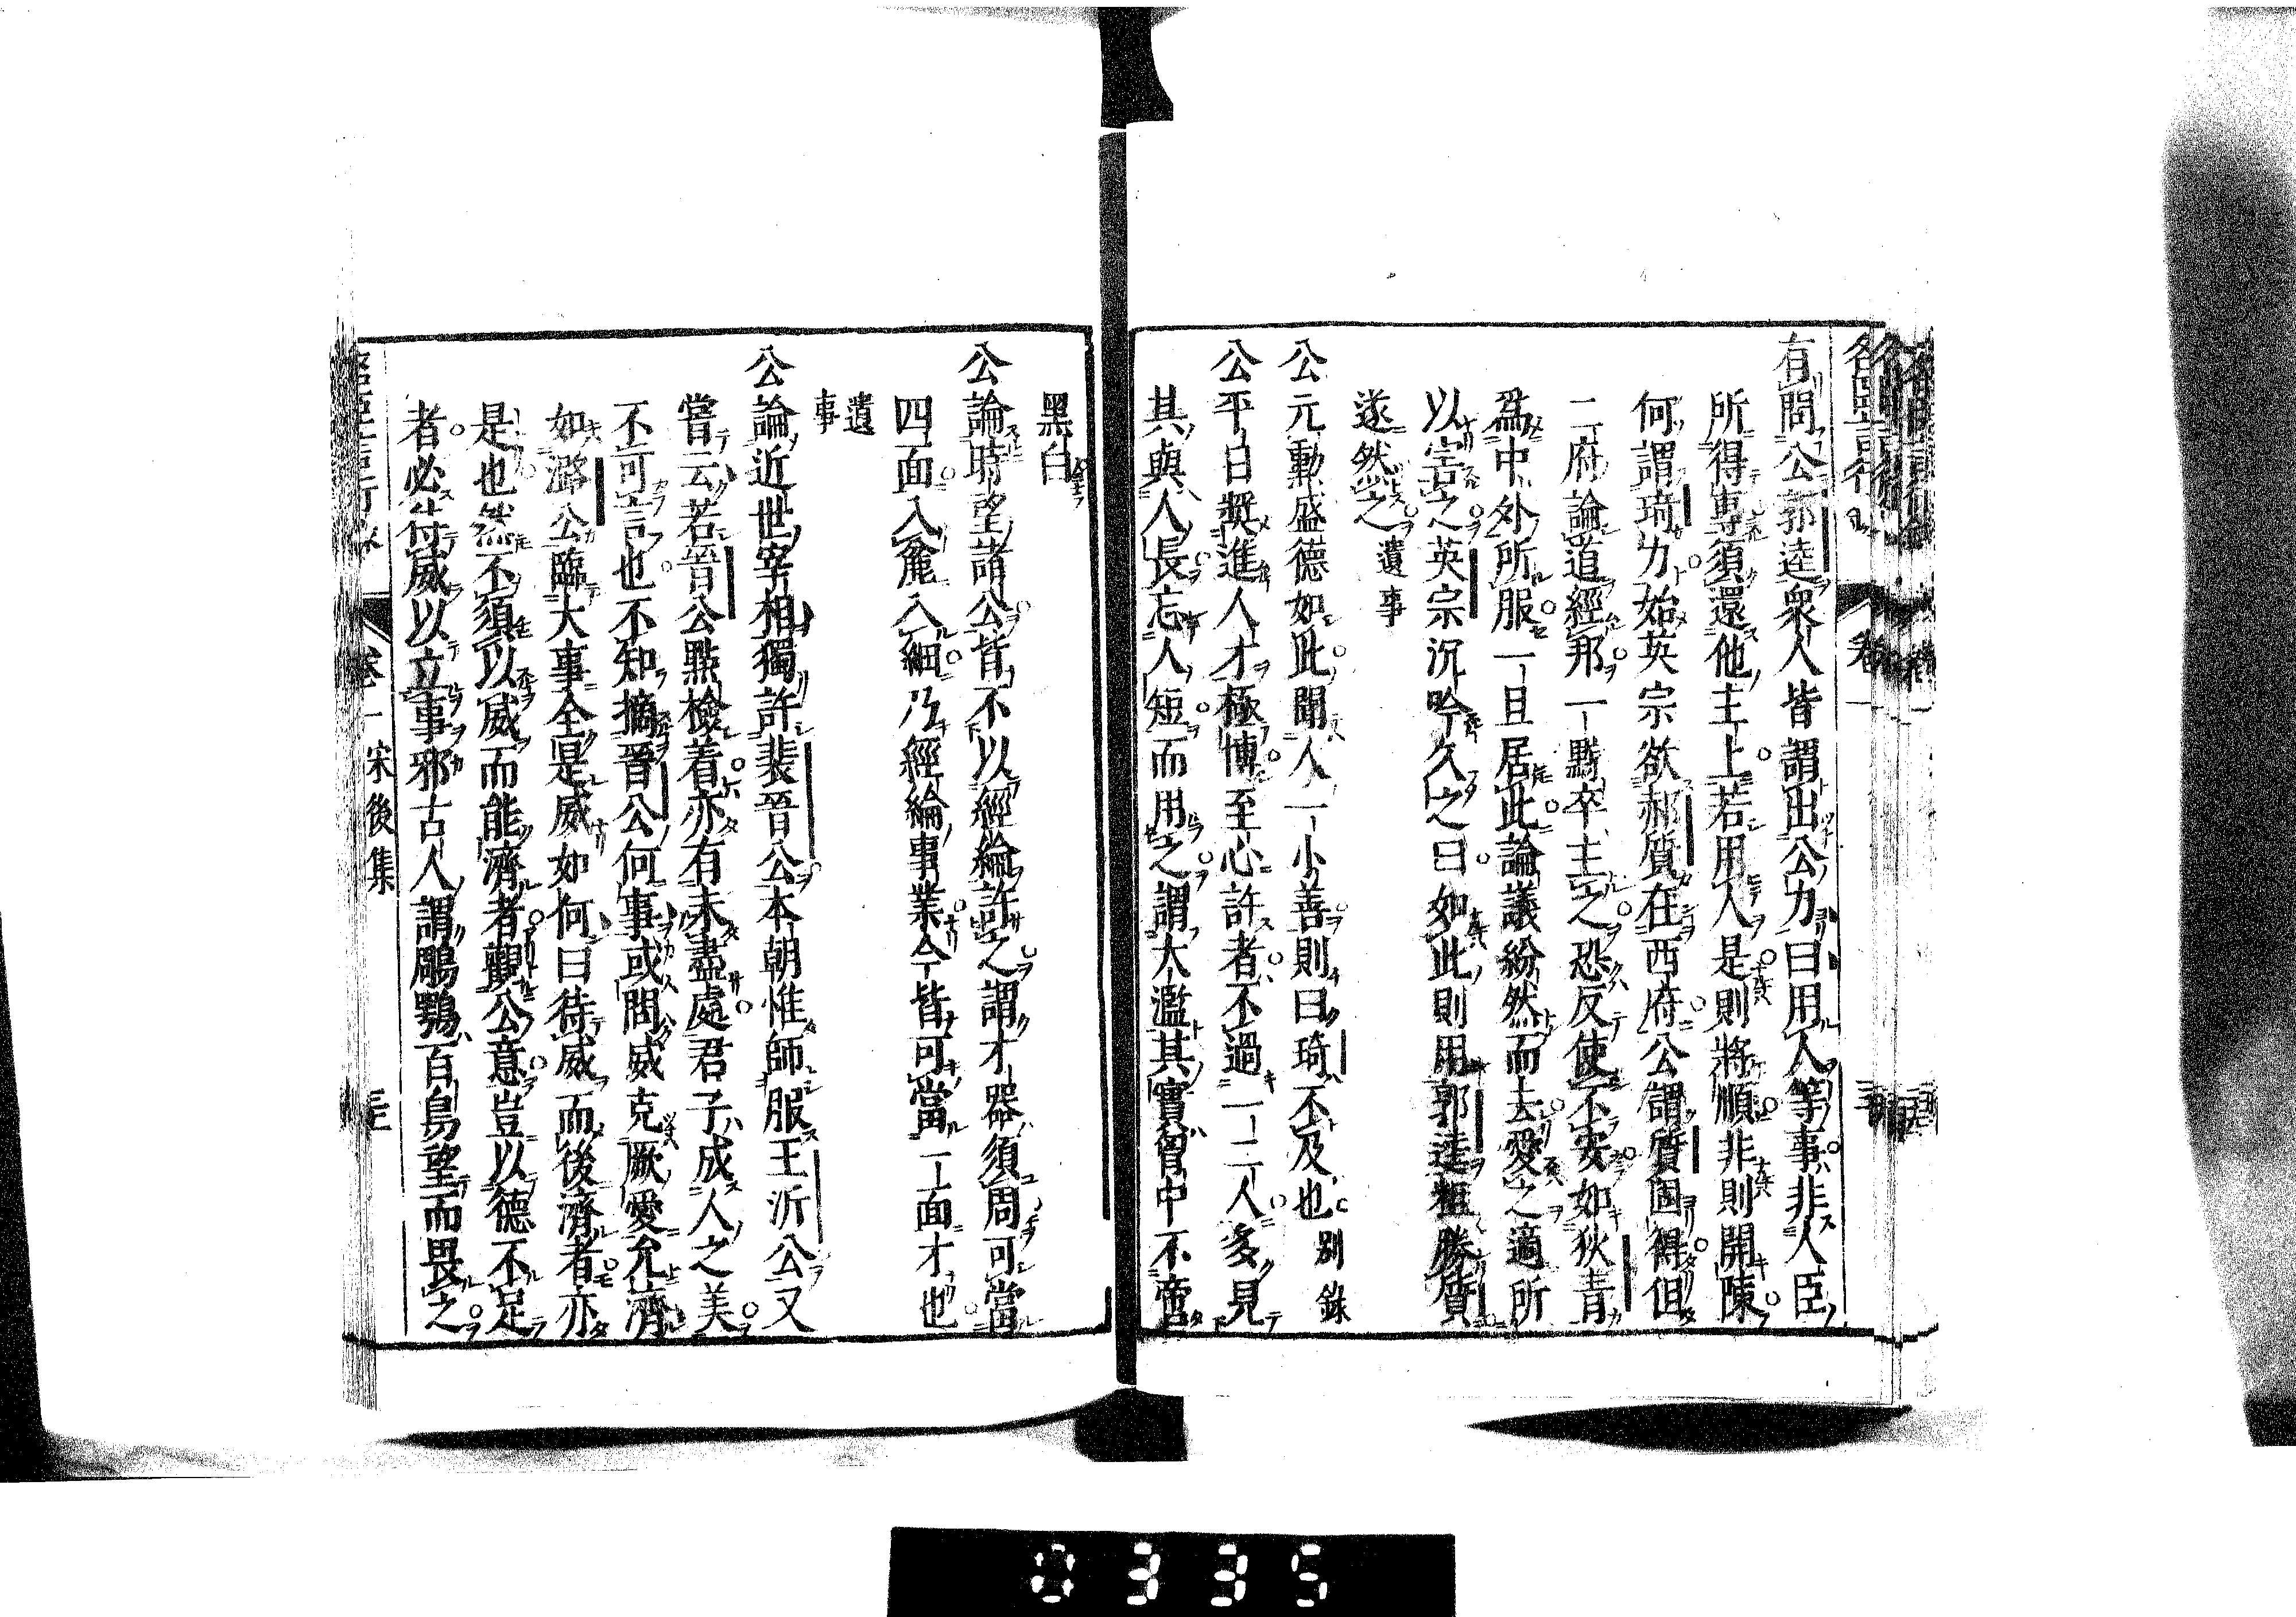 有問公郭逵衆人皆謂出公力曰用人等事非人臣
所得專須還他主上若用人是則將順非則開陳
何謂琦力始英宗欲郝質在西府公謂質固得但
二府論道經邦一黥卒主之恐反使不安如狄青
爲中外所服一旦居此論議紛然而去愛之適所
以害之英宗沉吟久之曰如此則用郭逵粗勝質
遂然之遺事
公元勳盛德如此聞人一小善則曰琦不及也別錄
公平日奬進人才極博至心許者不過一二人多見
其與人長忘人短而用之謂大濫其實胷中不啻
黑白
公論時望諸公皆不以經綸許之謂才器須周可當
四面入麄入細乃經綸事業今皆可當一面才也
遺事
公論近世宰相獨許裴晉公本朝惟師服王沂公又
嘗云若晉公點檢着亦有未盡處君子成人之美
不可言也不知摘晉公何事或問威克厥愛允濟
如潞公臨大事全是威如何曰待威而後濟者亦
是也然不須以威而能濟者觀公意豈以德不足
者必待威以立事邪古人謂鵰鶚百鳥望而畏之
宋後集
0335